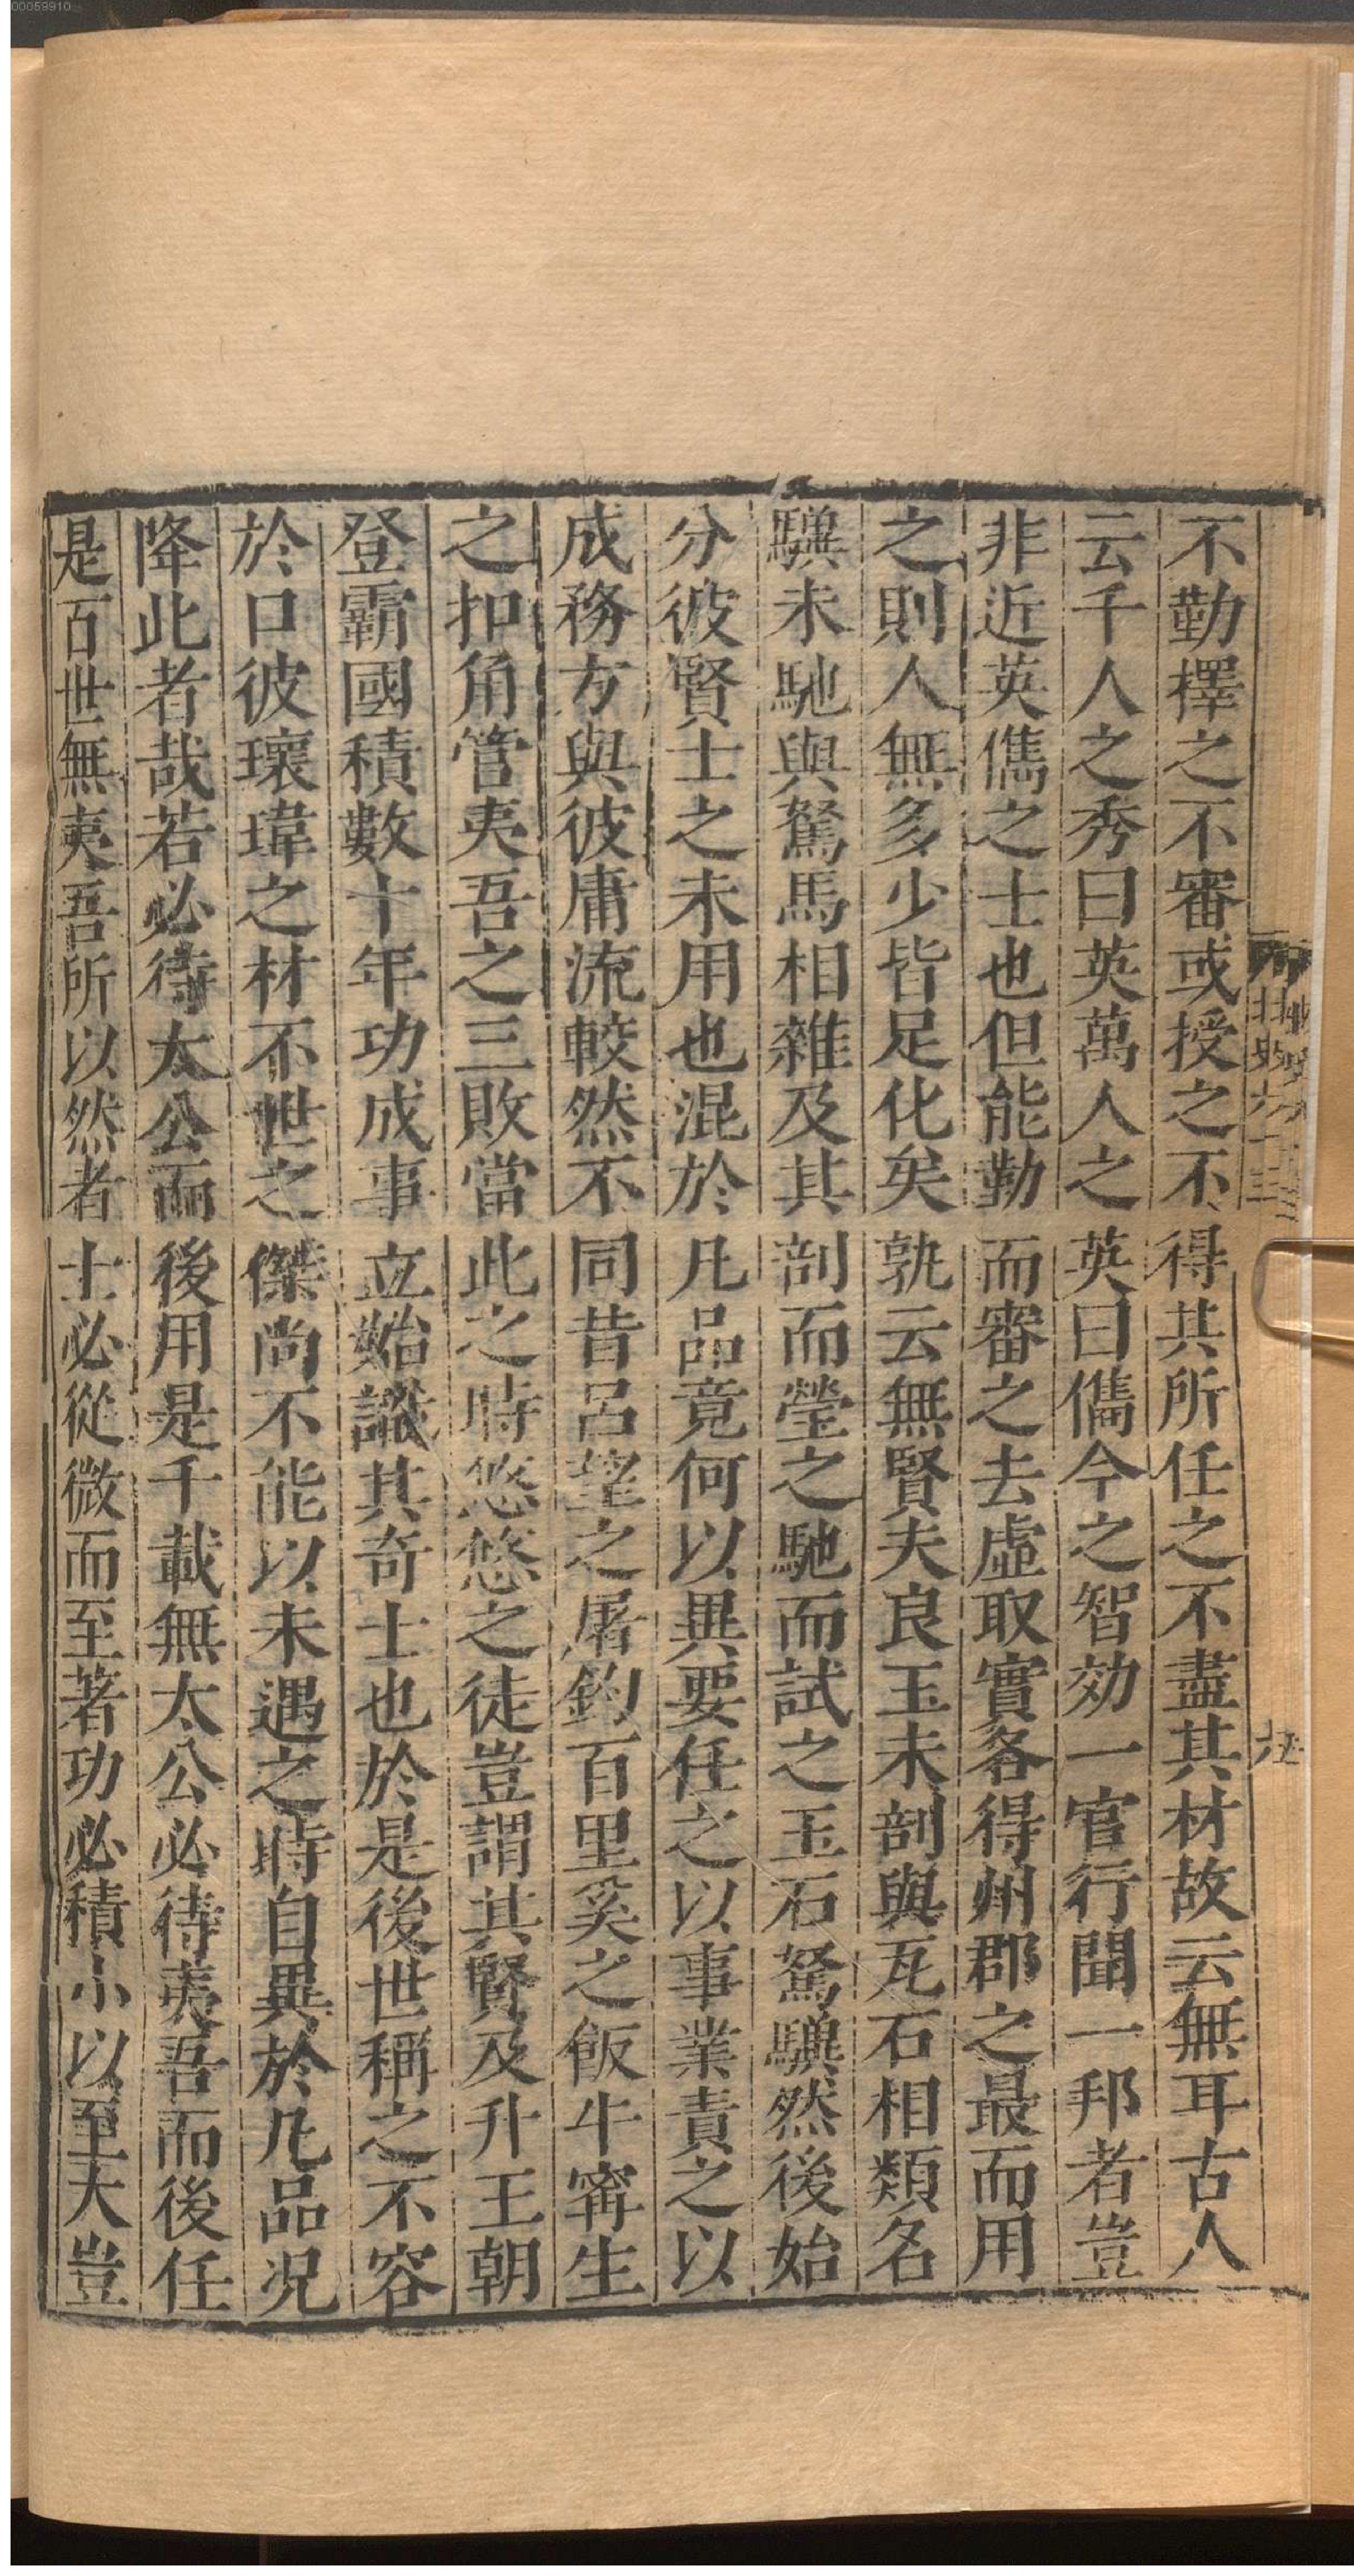 00059910
不勤擇之不審或授之不得其所任之不盡其材故云無耳古人
云千人之秀曰英萬人之英曰儁今之智効一官行聞一邦者豈
非近英儁之士也但能勤而審之去虛取實各得州郡之最而用
之則人無多少皆足化矣孰云無賢夫良玉未剖與瓦石相類名
驥未馳與駑馬相雜及其剖而瑩之馳而試之玉石駑驥然後始
分彼賢士之未用也混於凡品竟何以異要任之以事業責之以
成務方與彼庸流較然不同昔呂望之屠釣百里奚之飯牛寗生
之扣角管夷吾之三敗當此之時悠悠之徒豈謂其賢及升王朝
登霸國積數十年功成事立始識其奇士也於是後世稱之不容
於口彼瓌瑋之材不世之傑尚不能以未遇之時自異於凡品况
降此者哉若必待太公而後用是千載無太公必待夷吾而後任
是百世無夷吾所以然者士必從微而至著功必積小以至大豈